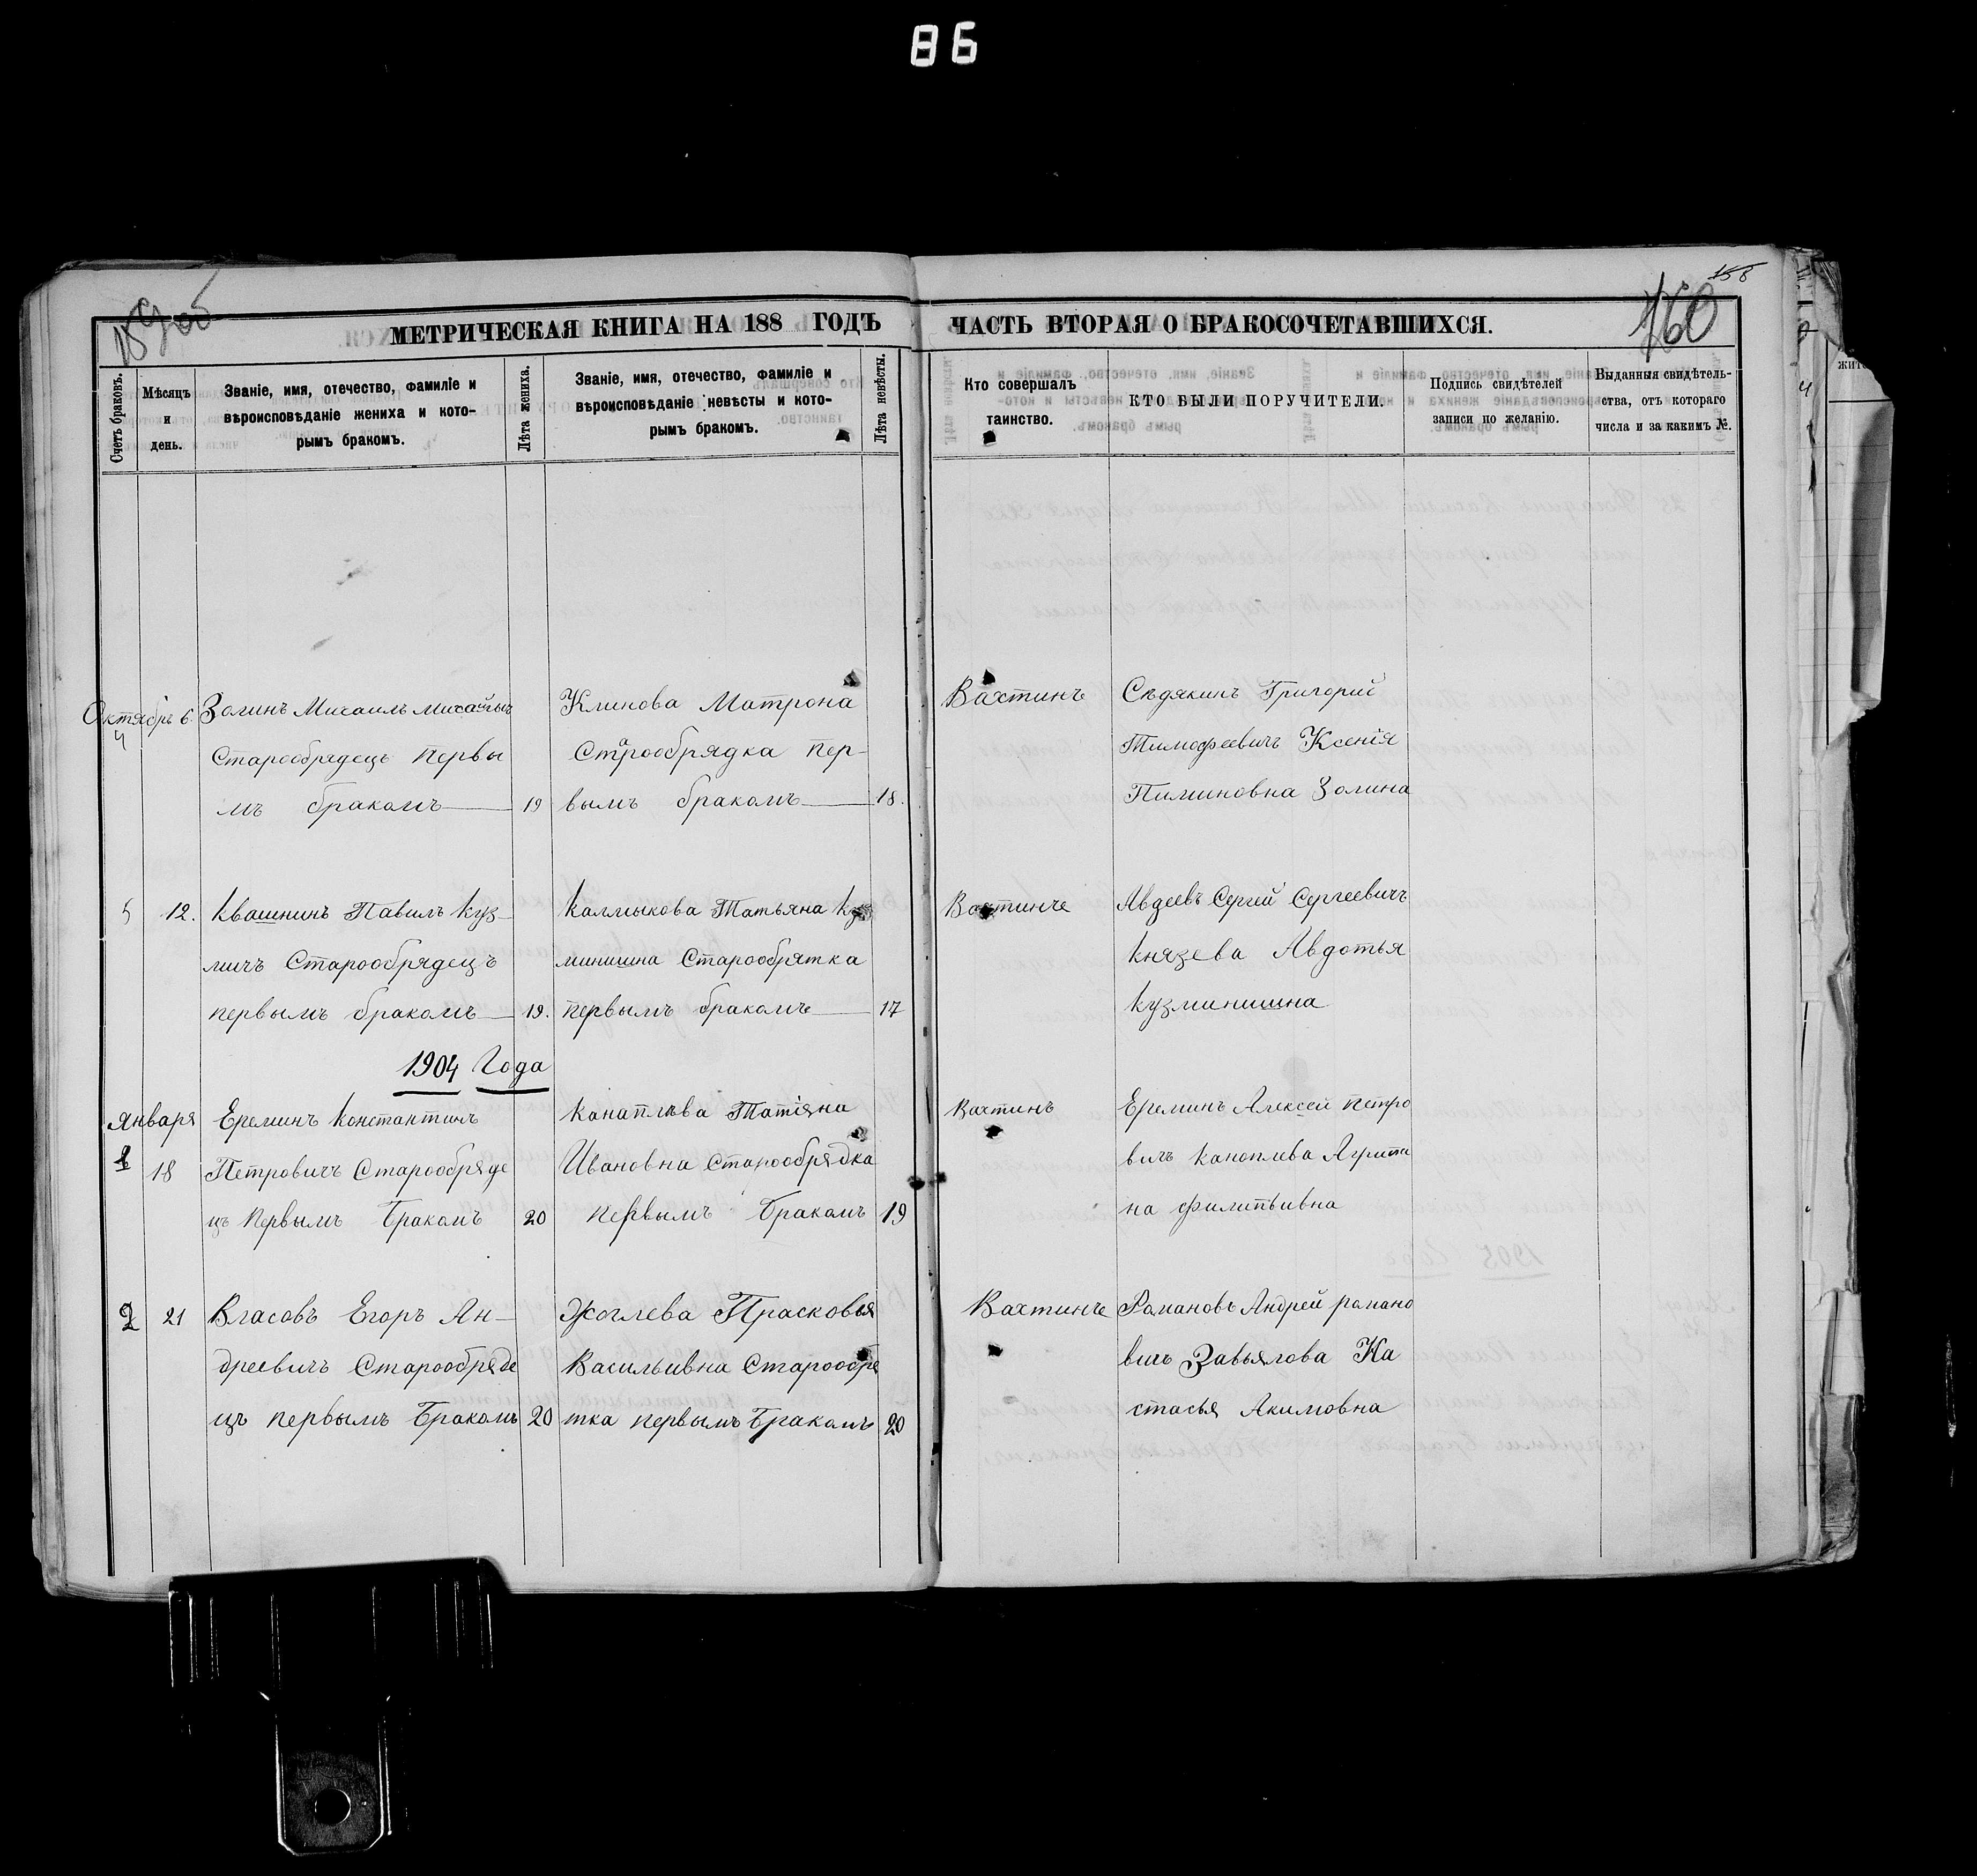 86
158
159 об
160
МЕТРИЧЕСКАЯ КНИГА НА 188 ГОДЪ
ЧАСТЬ ВТОРАЯ О БРАКОСОЧЕТАВШИХСЯ.
Счетъ браковъ.
Мѣсяцъ
и
день.
Званіе, имя, отечество, фамиліе и
вѣроисповѣданіе жениха и кото-
рымъ бракомъ.
Лѣта жениха.
Званіе, имя, отечество, фамиліе и
вѣроисповѣданіе невѣсты и кото-
рымъ бракомъ.
Лѣта невѣсты.
Кто совершалъ
таинство.
КТО БЫЛИ ПОРУЧИТЕЛИ.
Подпись свидѣтелей
записи по желанію.
Выданныя свидѣтель-
ства, отъ котораго
числа и за какимъ №.
Октябрь 6.
4
Золинъ Михаилъ Михайлычъ
Старообрядецъ Первы
мъ бракомъ 19
Климова Матрона
Старообрядка Пер-
вымъ бракомъ 18.
Вахтинъ
Сѣдякинъ Григорий
Тимофеевичъ Ксенія
Пиминовна Золина
5 12.
Квашнинъ Павилъ Куз-
мичъ Старообрядецъ
первымъ бракомъ 19.
Калмыкова Татьяна Куз
минишна Старообрятка
первымъ бракомъ 17
Вахтинъ
Авдеевъ Сергей Сергеевичъ
Князева Авдотья
Кузминишна
1904 Года
Января
1 18
Ереминъ Константинъ
Петровичъ Старообряде
цъ Первымъ Бракомъ 20
Канаплѣва Татіяна
Ивановна Старообрядка
Первымъ Бракомъ 19
Вахтинъ
Ереминъ Алексей Петро
вичъ Каноплева
на Филипьивна
2 21
Власовъ Егоръ Ан-
дреевичъ Старообряде
цъ первымъ Бракомъ 20
Жоглева Прасковья
Васильивна Старообря
тка первымъ Бракомъ 20
Вахтинъ
Романовъ Андрей романо
вичъ Завьялова На
стасья Акимовна